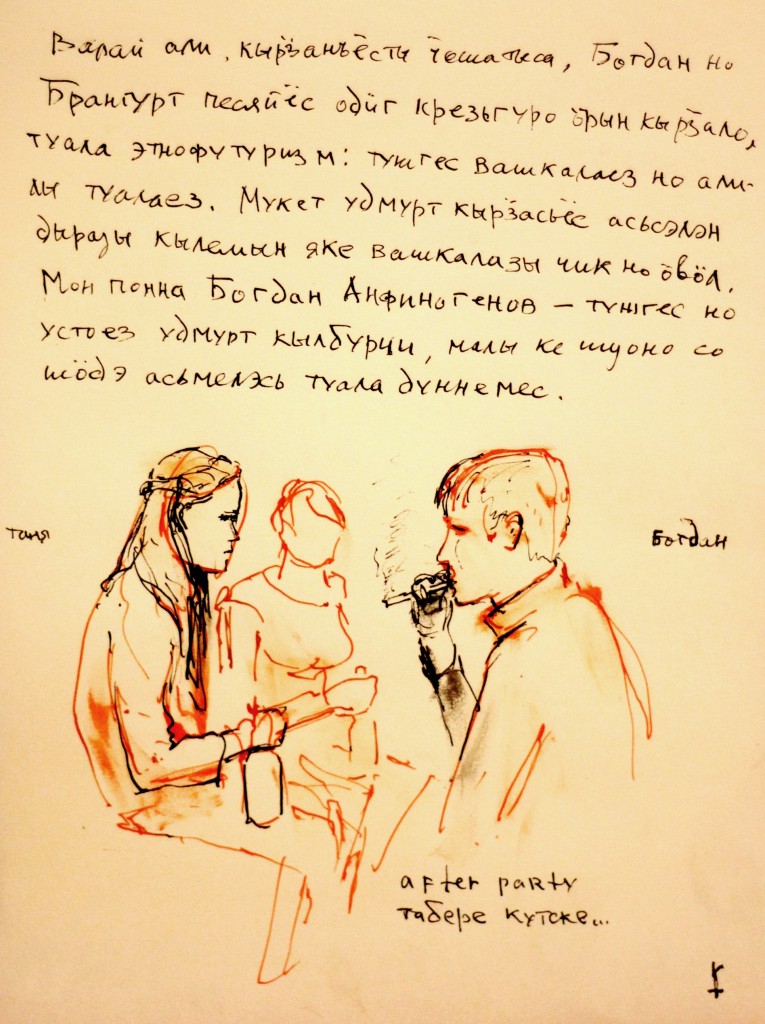 Вялай али, кырӟанъёсты ӵошатыса, Богдан но
Брангурт песяйёс одӥг крезьгуро ӧрын кырӟало,
туала этнофутуризм: тужгес вашкалаез но али-
лы туалаез. Мукет удмурт кырӟасьёс асьсэлэн
дыразы кылемын яке вашкалазы чик но ӧвӧл.
Мон понна Богдан Анфиногенов – тужгес но
устоез удмурт кылбурчи, малы ке шуоно со
шӧдэ асьмелэсь туала дуннемес.
таня
Богдан
after party
табере кутске...